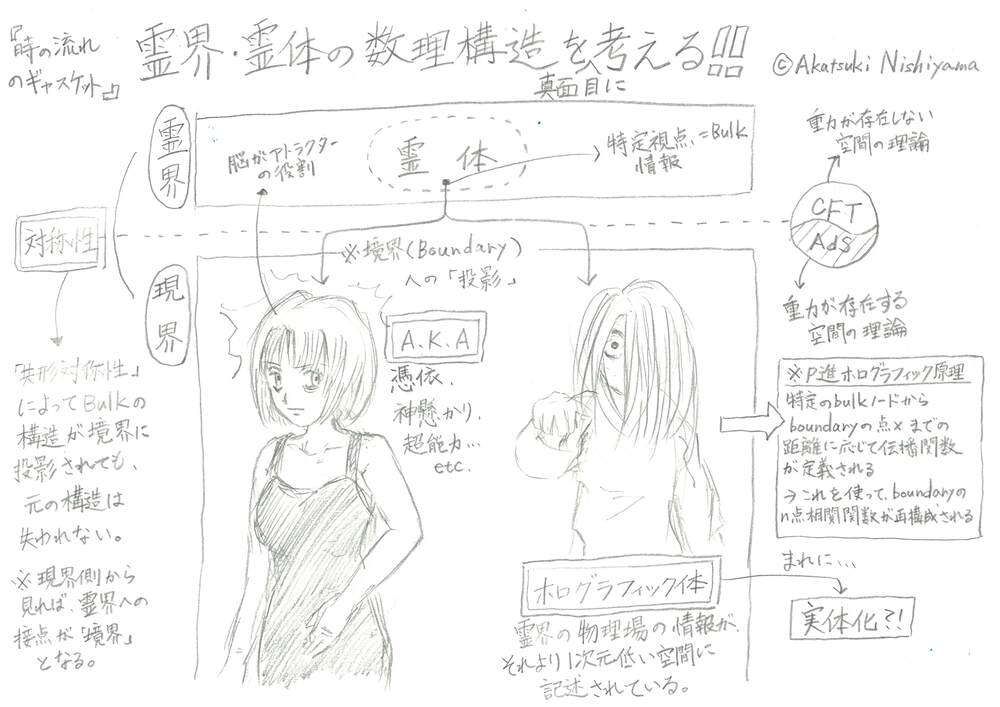 『時の流れ
のギャスケット』
霊界・霊体の数理構造を考える!!
真面目に
©Akatsuki Nishiyama
霊界
霊体
特定視点=Bulk
情報
脳がアトラクター
の役割
重力が存在しない
空間の理論
CFT
AdS
重力が存在する
空間の理論
対称性
現界
※境界(Boundary)
への「投影」
A.K.A
憑依、
神懸かり、
超能力…
etc.
「共形対称性」
によってBulkの
構造が境界に
投影されても、
元の構造は
失われない。
※現界側から
見れば、霊界への
接点が「境界」
となる。
※P進ホログラフィック原理
特定のbulkノードから
boundaryの点xまでの
距離に応じて伝播関数
が定義される
→これを使って、boundaryの
n点相関関数が再構成される
まれに…
実体化?!
ホログラフィック体
霊界の物理場の情報が、
それより1次元低い空間に
記述されている。